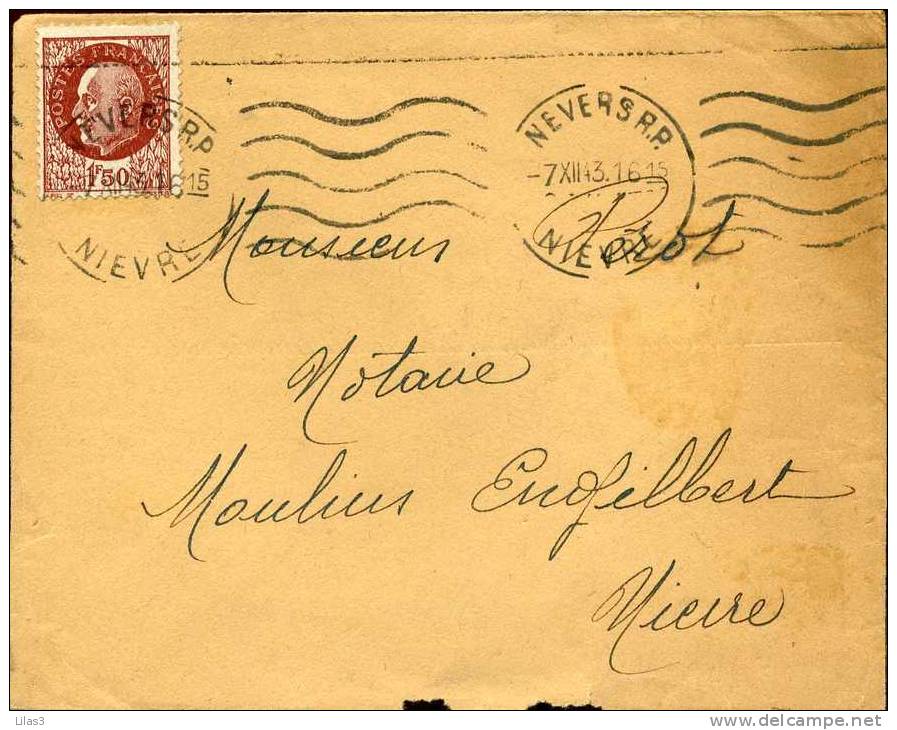 POSTES FRANÇAISES
1F50
NEVERS R.P.
-7 XII 43. 16 15
NIEVRE
NEVERS R.P.
-7 XII 43. 16 15
NIEVRE
Monsieur Perot
Notaire
Moulins Engilbert
Nievre
Lilas3
www.delcampe.net